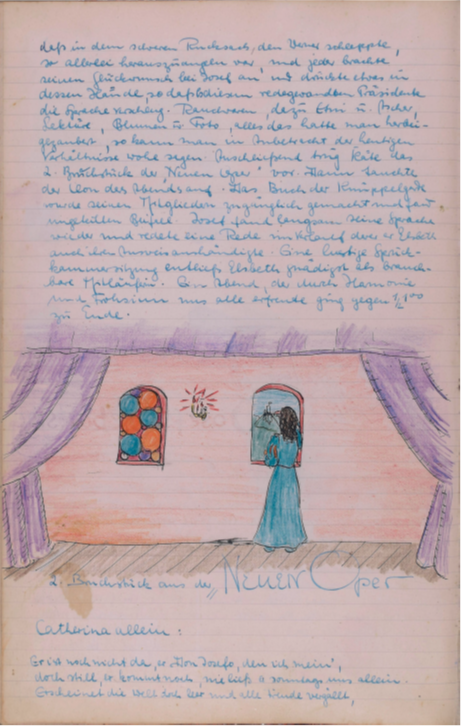 daß in dem schweren Rucksack, den Verner schleppte,
so allerlei herauszuangeln war, und jeder brachte
seinen Glückwunsch bei Josef an, und drückte etwas in
dessen Hände, so daß diesem redegewandten Präsidenten
die Sprache verschlug. Rauchwaren, dazu Etui u. Ascher,
Lektüre, Blumen u. Foto, alles das hatte man herbei-
gezaubert, so kann man in Anbetracht der heutigen
Verhältnisse wohl sagen. Anschließend trug Käte das
2. Bruchstück der "Neuen Oper" vor. Dann tauchte
der Clou des Abends auf. Das Buch der
wurde seinen Mitgliedern zugänglich gemacht und fand
Beifall. Josef fand langsam seine Sprache
wieder und redete eine Rede er Elsbeth
auch den Ausweis aushändigte. Eine lustige Spruch-
kammersitzung entließ Elsbeth gnädigst als brauch-
bare Mitläuferin. Ein Abend, der durch Harmonie
und Frohsinn uns alle erfreute ging gegen
zu Ende.
2. Bruchstück aus der "NEUEN Oper
Catherina allein:
Er ist noch nicht da, er Don Josefo, den ich mein',
doch still, er kommt noch, nie ließ er sonntags uns allein.
Erscheinet die Welt doch leer und alle Freude vergällt,